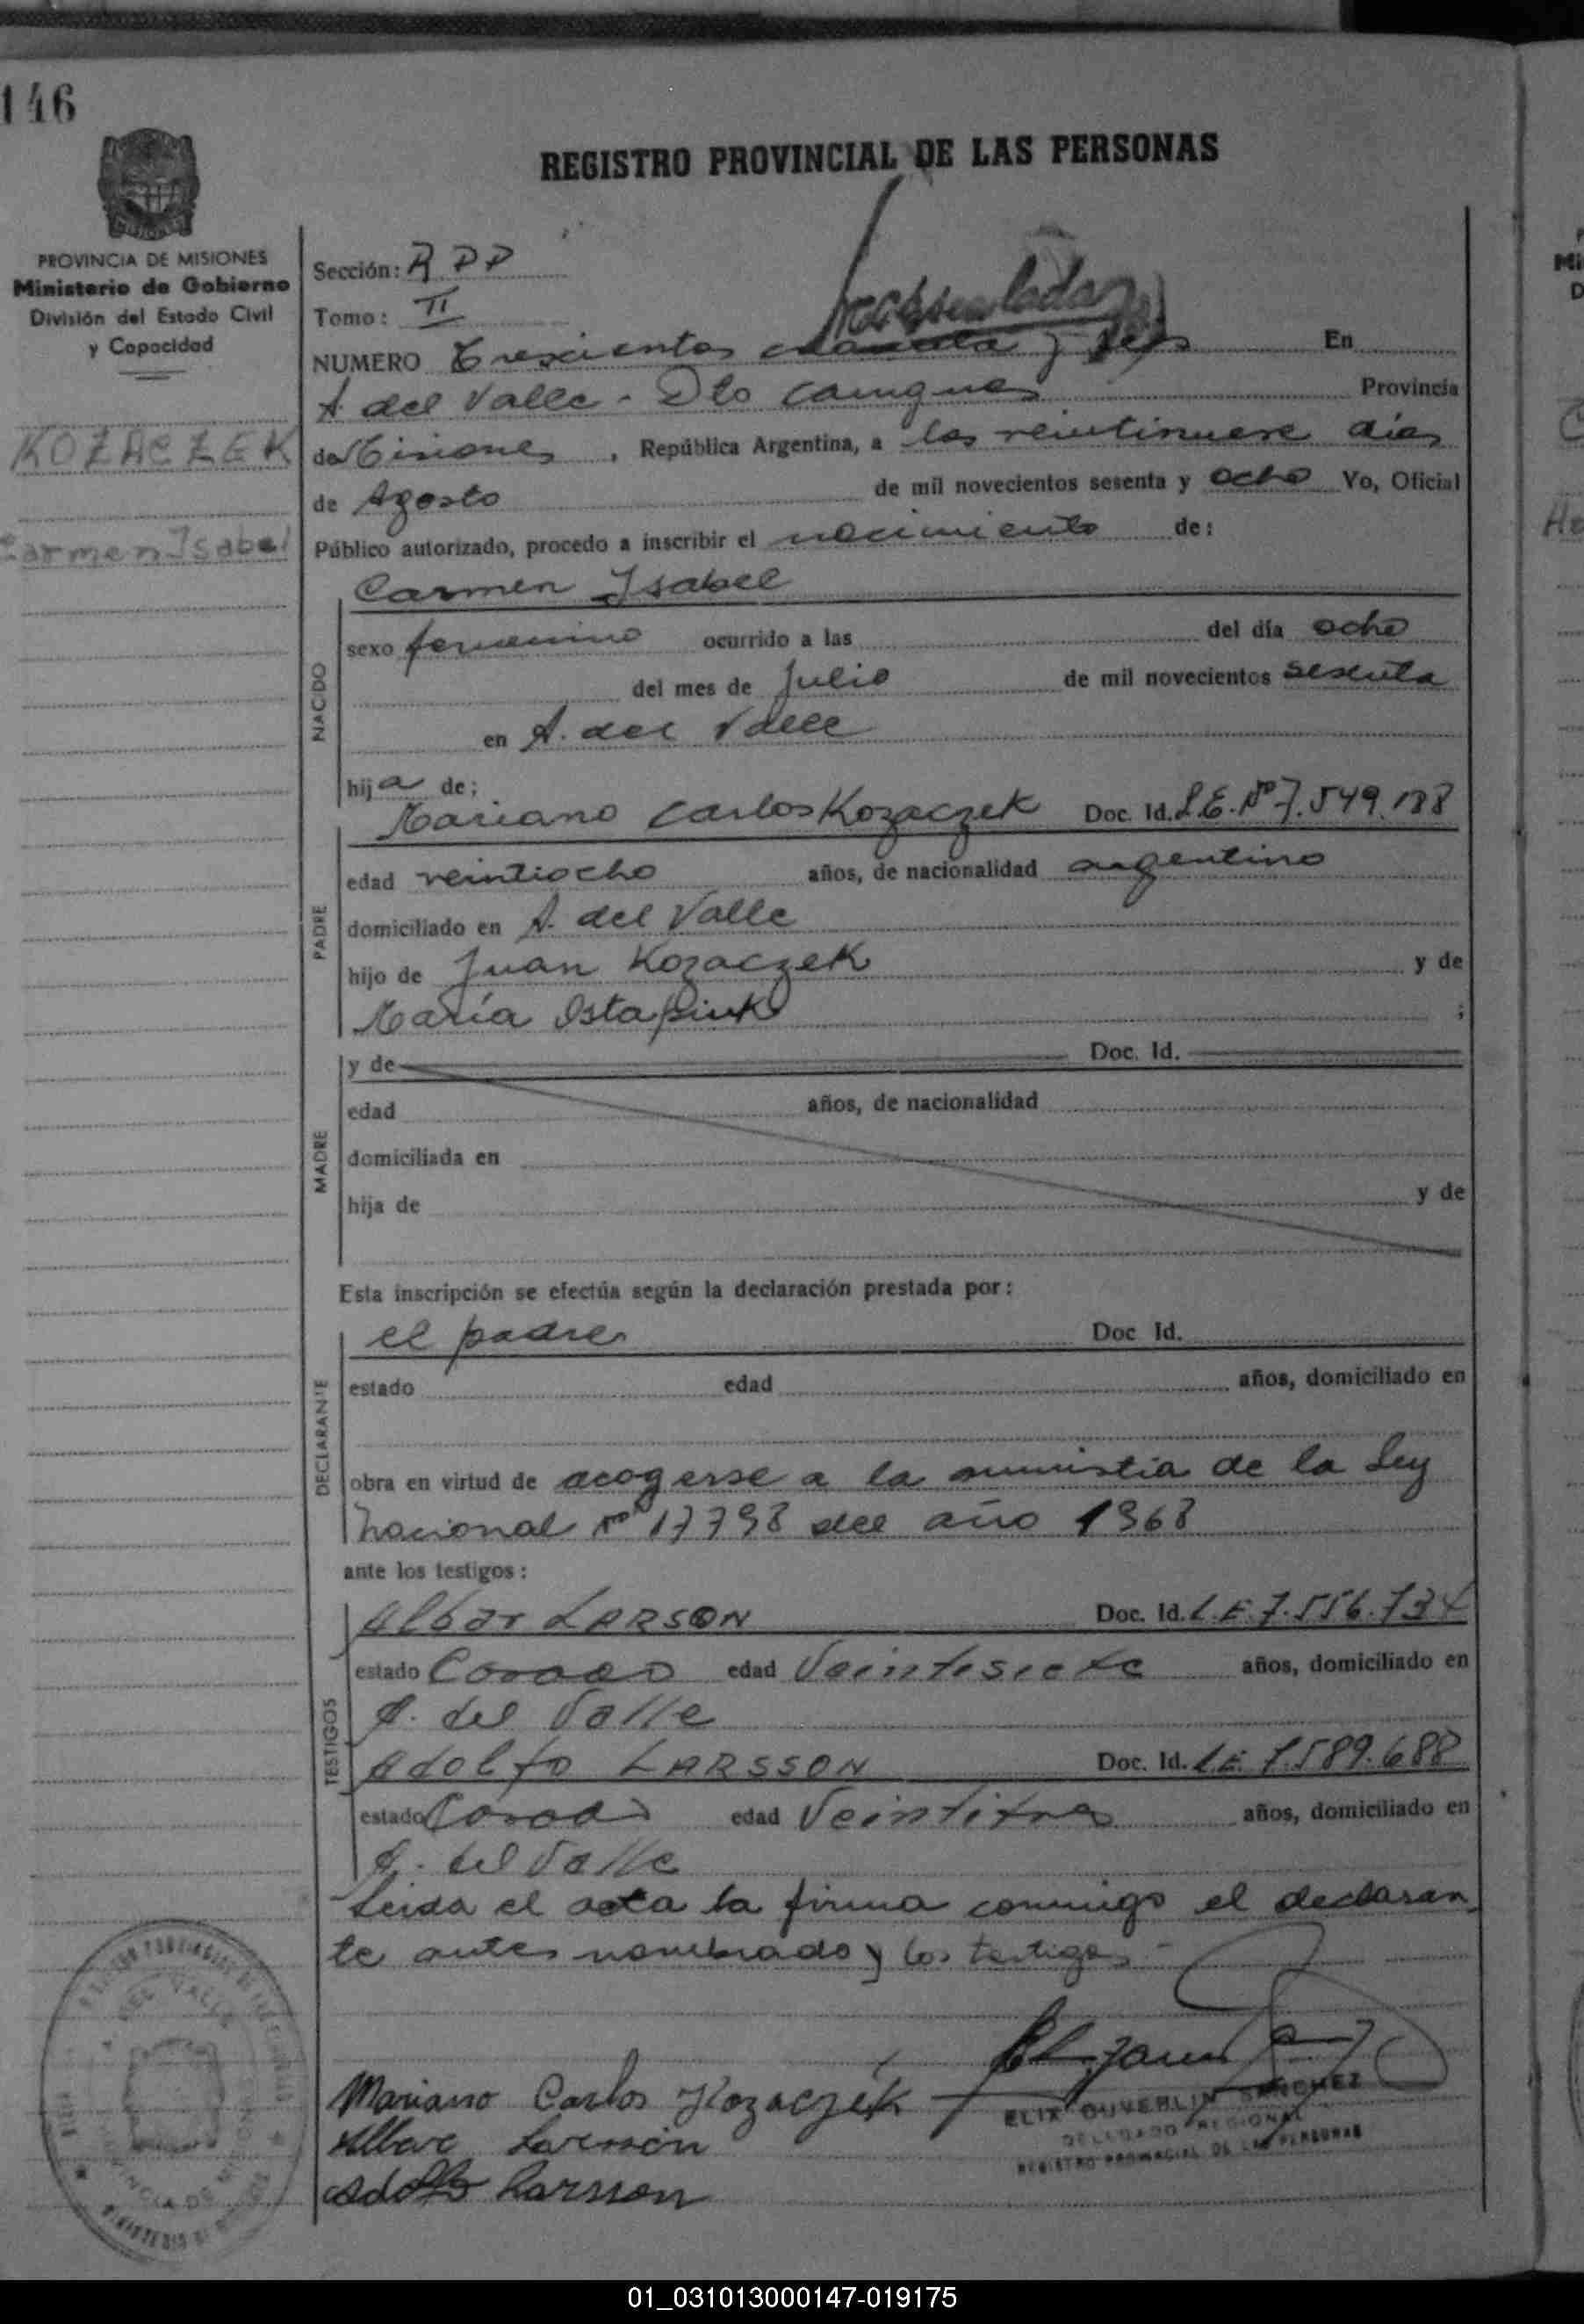 146
REGISTRO PROVINCIAL DE LAS PERSONAS
PROVINCIA DE MISIONES
Ministerio de Gobierno
División del Estado Civil
y Capacidad
KOZACZEK
Carmen Isabel
Sección: R P P
Tomo: II
NUMERO Trescientos y seis En
A. del Valle - Dto Cainguas Provincia
de Misiones, República Argentina, a los veintinueve días
de Agosto de mil novecientos sesenta y ocho Yo, Oficial
Público autorizado, procedo a inscribir el nacimiento de:
NACIDO
Carmen Isabel
sexo femenino ocurrido a las del día ocho
del mes de Julio de mil novecientos sesenta
en A. del Valle
hija de;
PADRE
Mariano Carlos Kozaczek Doc. Id. L.E. Nº 7.549.188
edad veintiocho años, de nacionalidad argentino
domiciliado en A. del Valle
hijo de Juan Kozaczek y de
María Ostapiuk ;
MADRE
y de Doc. Id.
edad años, de nacionalidad
domiciliada en
hija de y de
Esta inscripción se efectúa según la declaración prestada por:
DECLARANTE
el padre Doc Id.
estado edad años, domiciliado en
obra en virtud de acogerse a la amnistia de la Ley
Nacional nº 17798 del año 1968
ante los testigos:
TESTIGOS
Albar LARSON Doc. Id. L.E. 7.556.734
estado Casado edad Veintesiete años, domiciliado en
A. del Valle
Adolfo LARSSON Doc. Id. L.E. 7.589.688
estado Casado edad Veintitres años, domiciliado en
A. del Valle
Leida el acta la firma conmigo el declaran
te antes nombrado y los testigos -
Mariano Carlos Kozaczek
Albar Larsson
Adolfo Larsson
ELIX DUVERLIN SANCHEZ
DELEGADO REGIONAL
REGISTRO PROVINCIAL DE LAS PERSONAS
01_031013000147-019175